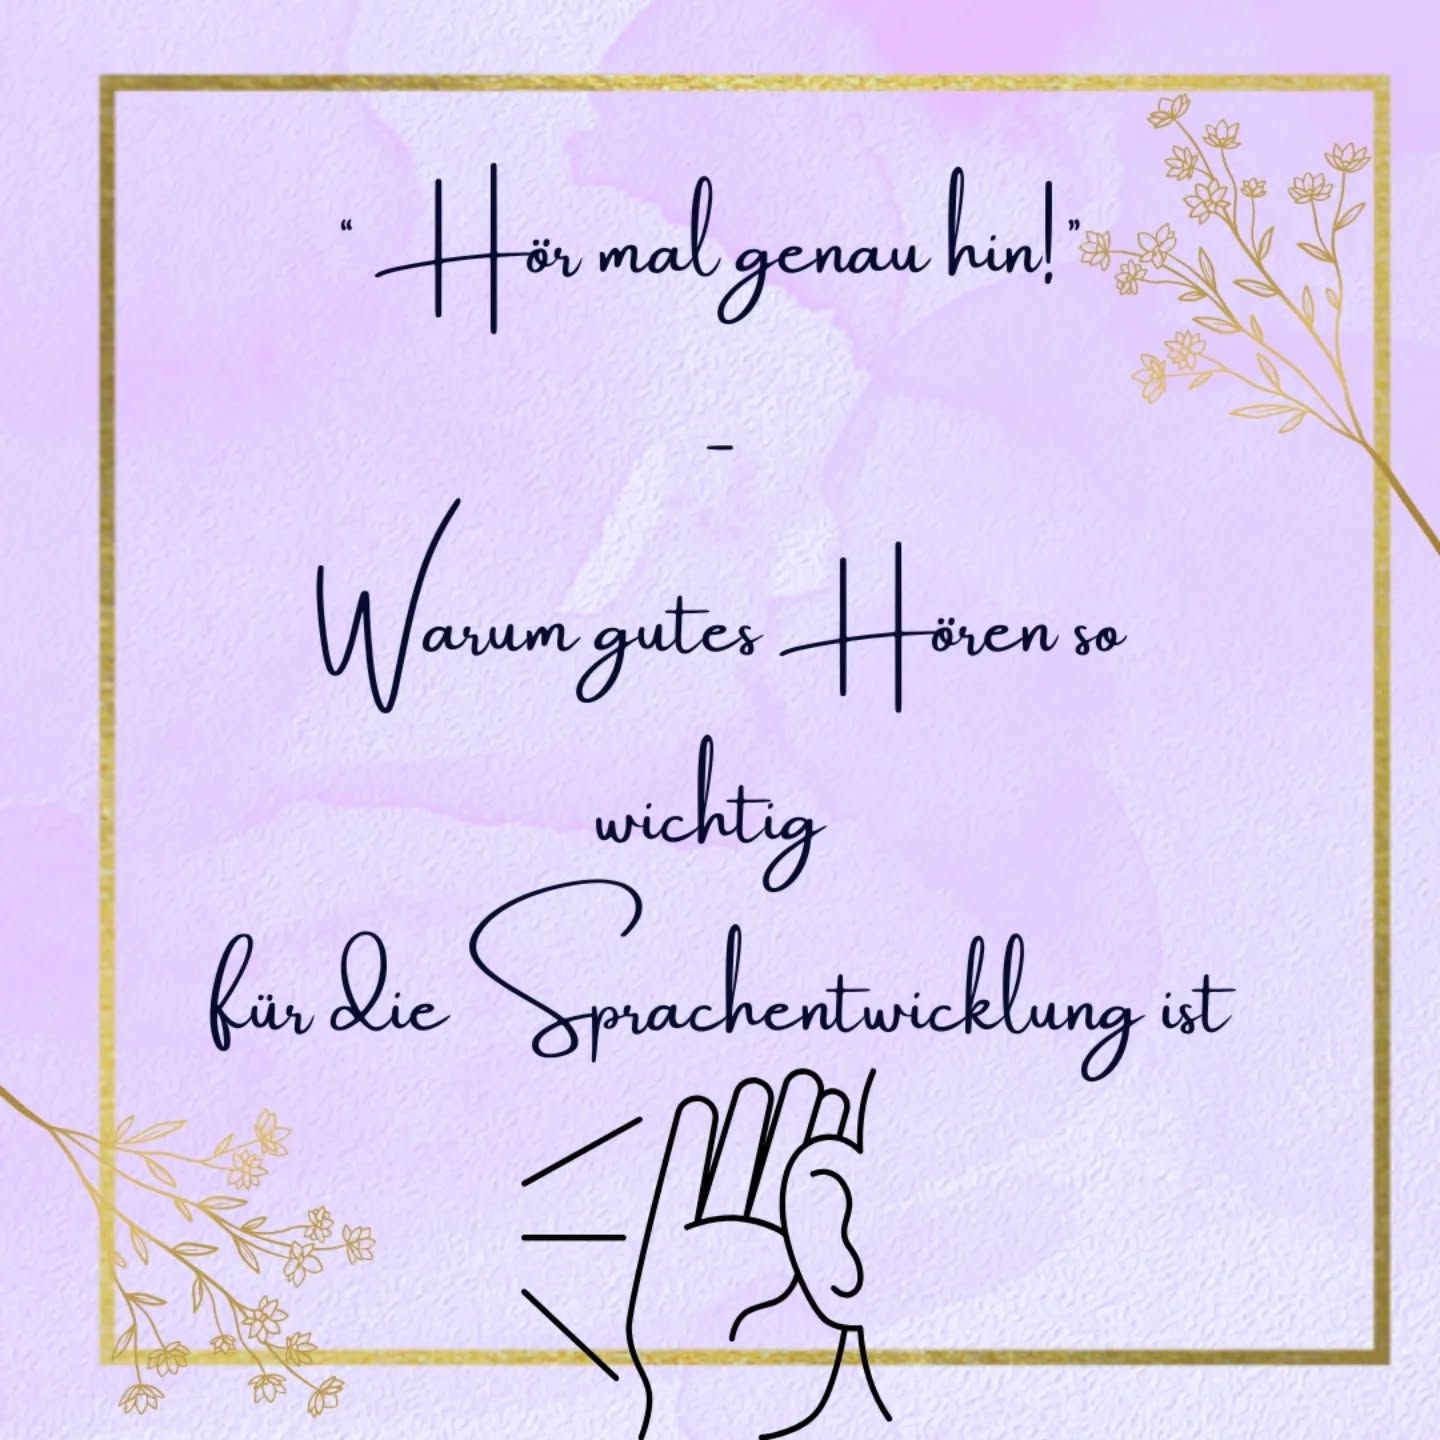 “ Hör mal genau hin!”
-
Warum gutes Hören so
wichtig
für die Sprachentwicklung ist